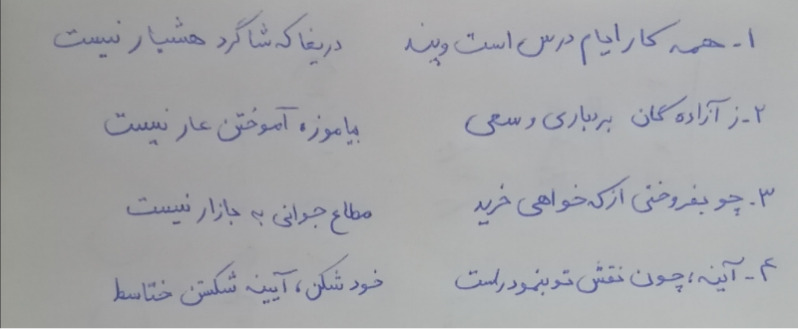 ۱- همه کار ایام درس است و پند    دریغا که شاگرد هشیار نیست
۲- ز آزاده گان بردباری و سعی    بیاموز، آموختن عار نیست
۳- چو بفروختی از که خواهی خرید    مطاع جوانی به بازار نیست
۴- آینه، چون نقش تو بنمود راست    خود شکن، آیینه شکستن ختاسط